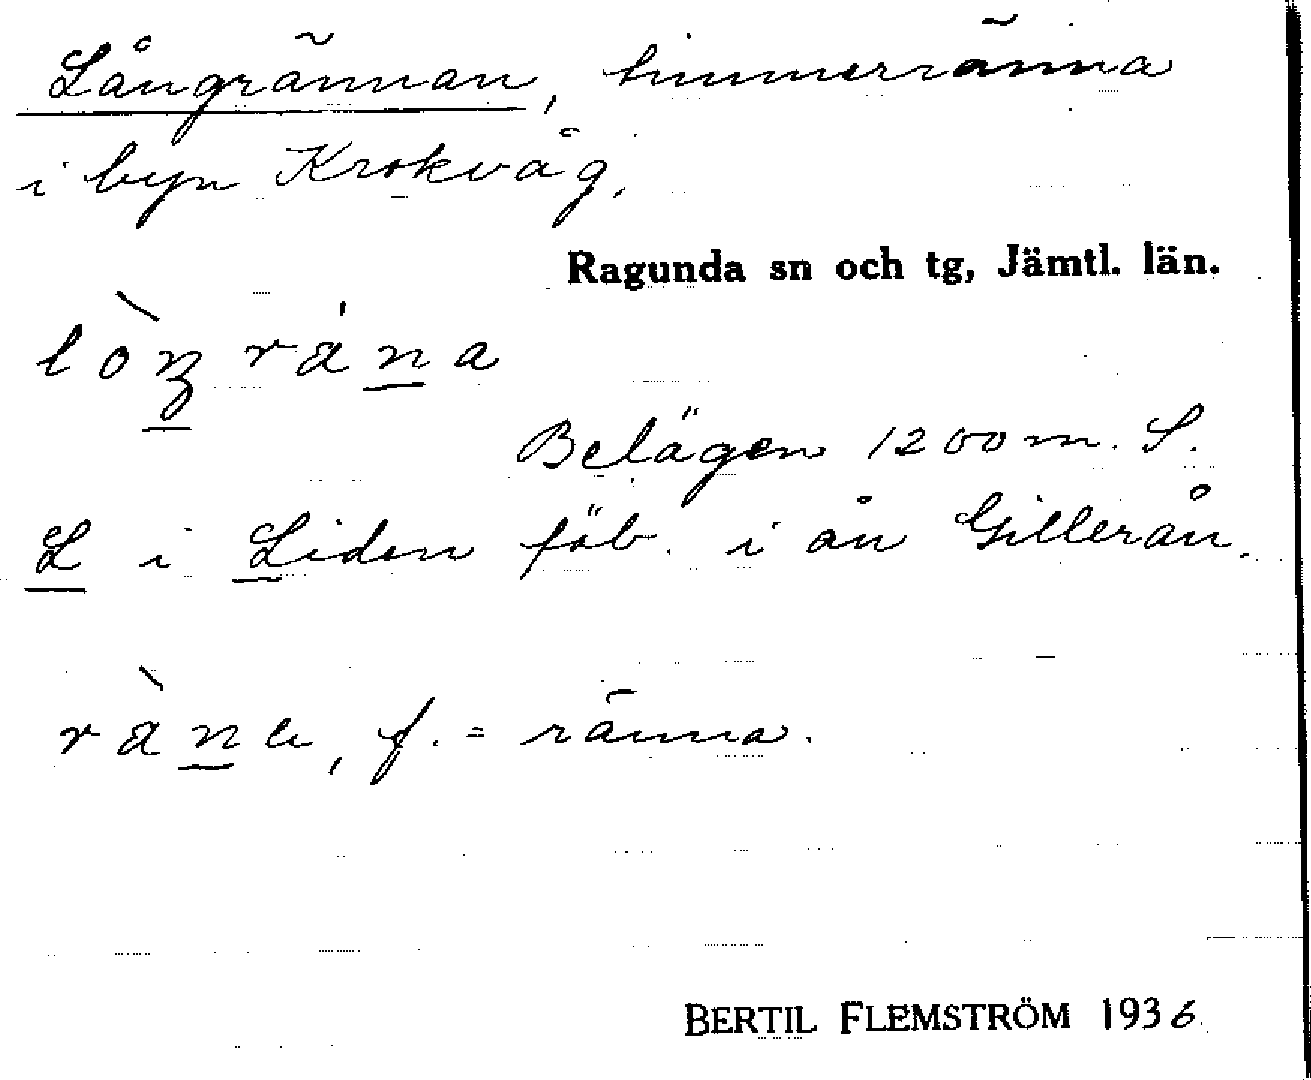 Långrännan, timmerränna
i byn Krokvåg,
Ragunda sn och tg, Jämtl. län.
lòŋ rána
Belägen 1200 m. S.
L i Liden fäb. i ån Gillerån.
ràna, f. = ränna.
BERTIL FLEMSTRÖM 1936